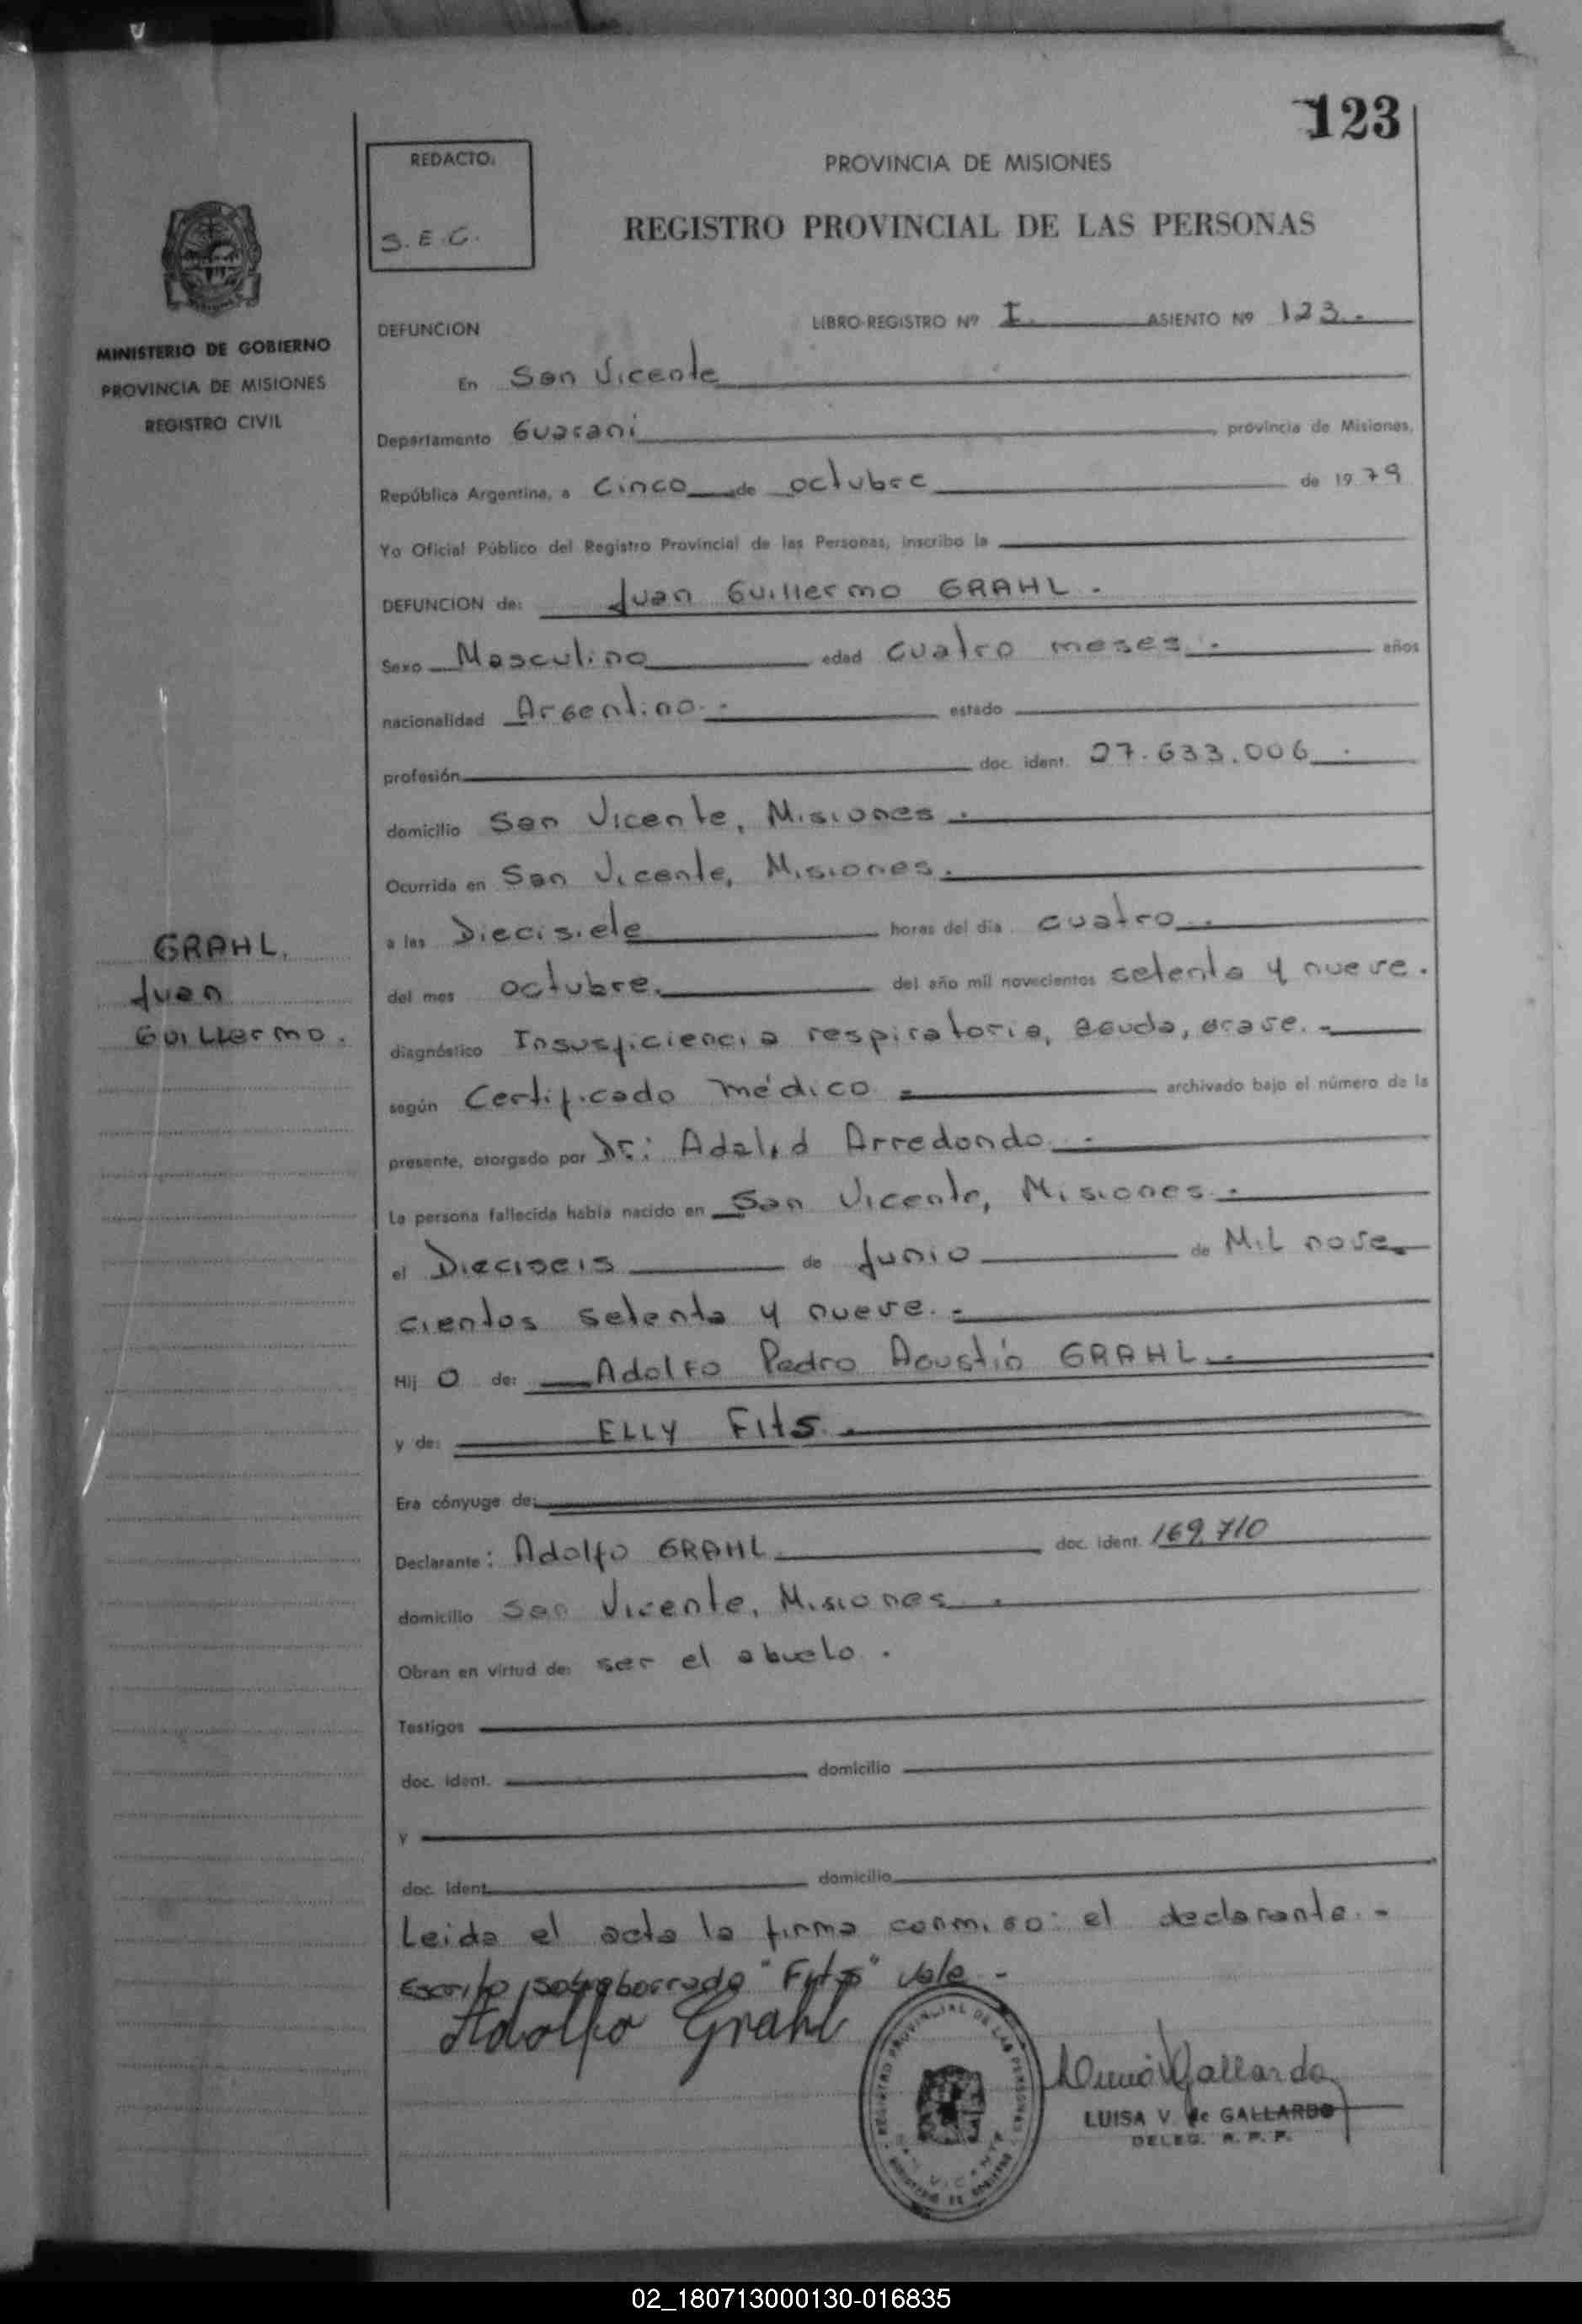 123
REDACTO:
S.E.G.
PROVINCIA DE MISIONES
REGISTRO PROVINCIAL DE LAS PERSONAS
MINISTERIO DE GOBIERNO
PROVINCIA DE MISIONES
REGISTRO CIVIL
DEFUNCION
LIBRO-REGISTRO Nº I. ASIENTO Nº 123.-
En San Vicente
Departamento Guarani provincia de Misiones,
República Argentina, a Cinco de octubre de 1979
Yo Oficial Público del Registro Provincial de las Personas, inscribo la
DEFUNCION de: Juan Guillermo GRAHL.
Sexo Masculino edad cuatro meses.- años
nacionalidad Argentino.- estado
profesión doc. ident. 27.633.006.-
domicilio San Vicente, Misiones.
Ocurrida en San Vicente, Misiones.
a las Diecisiete horas del día cuatro.-
del mes octubre. del año mil novecientos setenta y nueve.
diagnóstico Insuficiencia respiratoria, aguda, grave.-
según Certificado médico.- archivado bajo el número de la
presente, otorgado por Dr: Adalid Arredondo.-
La persona fallecida había nacido en San Vicente, Misiones.-
el Dieciseis de Junio de Mil nove-
cientos setenta y nueve.-
Hij O de: Adolfo Pedro Agustín GRAHL.-
y de: ELLY Fits.-
Era cónyuge de:
Declarante: Adolfo GRAHL doc. ident. 169.710
domicilio San Vicente, Misiones.
Obran en virtud de: ser el abuelo.
Testigos
doc. ident. domicilio
y
doc. ident. domicilio
Leida el acta la firma conmigo: el declarante.-
Escrito sobreborrado "Fits" vale-
Adolfo Grahl
Gallardo
LUISA V. de GALLARDO
DELEG. R. P. P.
REGISTRO PROVINCIAL DE LAS PERSONAS
SAN VICENTE
MINISTERIO DE GOBIERNO
GRAHL.
Juan
Guillermo.
02_180713000130-016835